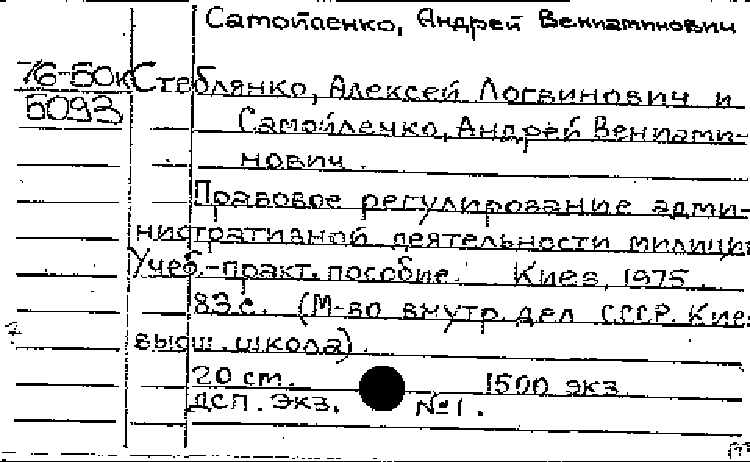 Самойленко, Андрей Вениаминович
76-50к
5093
Стеблянко, Алексей Логвинович и
Самойленко, Андрей Вениами-
нович.
Правовое регулирование адми-
нистративной деятельности милиции
Учеб.-практ. пособие. Киев, 1975.
83 с. (М-во внутр. дел СССР. Киев
высш. школа).
20 см. 1500 экз
ДСП. Экз. №1.